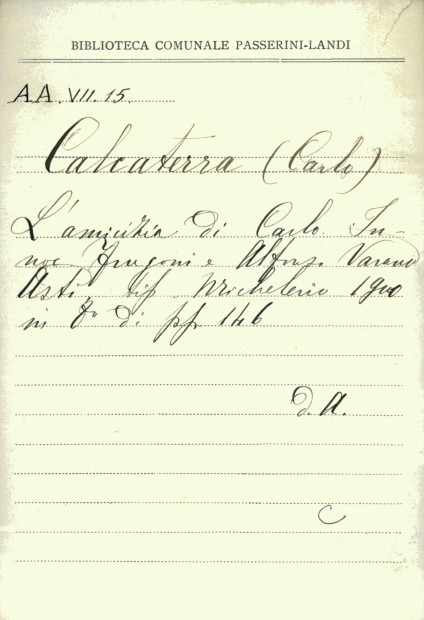 BIBLIOTECA COMUNALE PASSERINI-LANDI
AA. VII. 15.
Calcaterra (Carlo)
L'amicizia di Carlo In-
noc Frugoni e Alfonso Varano
Asti, tip Michelerio 1920
in 8º di pp 146
d. A.
C